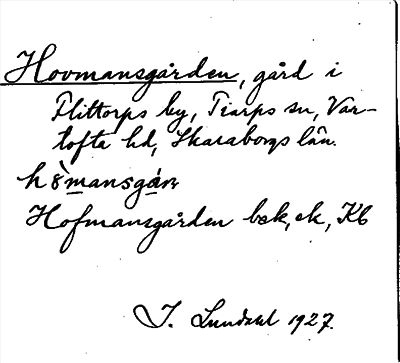 Hovmansgården, gård i
Flittorps by, Tiarps sn, Var-
tofta hd, Skaraborgs län.
Hofmansgården bok, ek, Kb
I. Lundahl 1927.